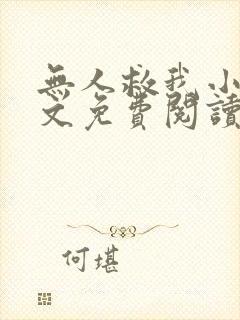 無人救我小
文免費閱讀
何堪